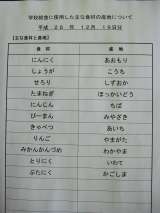 学校給食に使用した主な食材の産地について
平成26年12月19日分
【主な食材と産地】
食材 産地
にんにく あおもり
しょうが こうち
せろり しずおか
たまねぎ ほっかいどう
にんじん ちば
ぴーまん みやざき
きゃべつ あいち
りんご やまがた
みかんかんづめ わかやま
とりにく いわて
ぶたにく かごしま